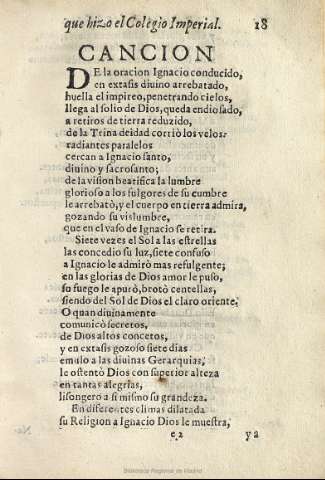 que hizo el Colegio Imperial. 18
CANCION
DE la oracion Ignacio conducido,
en extasis diuino arrebatado,
huella el impireo, penetrando cielos,
llega al solio de Dios, queda endiosado,
a retiros de tierra reduzido,
de la Trina deidad corriò los velos:
radiantes paralelos
cercan a Ignacio santo,
diuino y sacrosanto;
de la vision beatifica la lumbre
glorioso a los fulgores de su cumbre
le arrebatò, y el cuerpo en tierra admira,
gozando su vislumbre,
que en el vaso de Ignacio se retira.
Siete vezes el Sol a las estrellas
las concedio su luz, siete confuso
a Ignacio le admirò mas refulgente;
en las glorias de Dios amor le puso,
so fuego le apurò, brotò centellas,
siendo del Sol de Dios el claro oriente.
O quan diuinamente
comunicò secretos,
de Dios altos concetos,
y en extasis gozoso siete dias
emulo a las diuinas Gerarquias,
le ostentò Dios con superior alteza
en tantas alegrias,
lisongero a si mismo su grandeza.
En diferentes climas dilatada
su Religion a Ignacio Dios le muestra,
e2 ya
Biblioteca Regional de Madrid